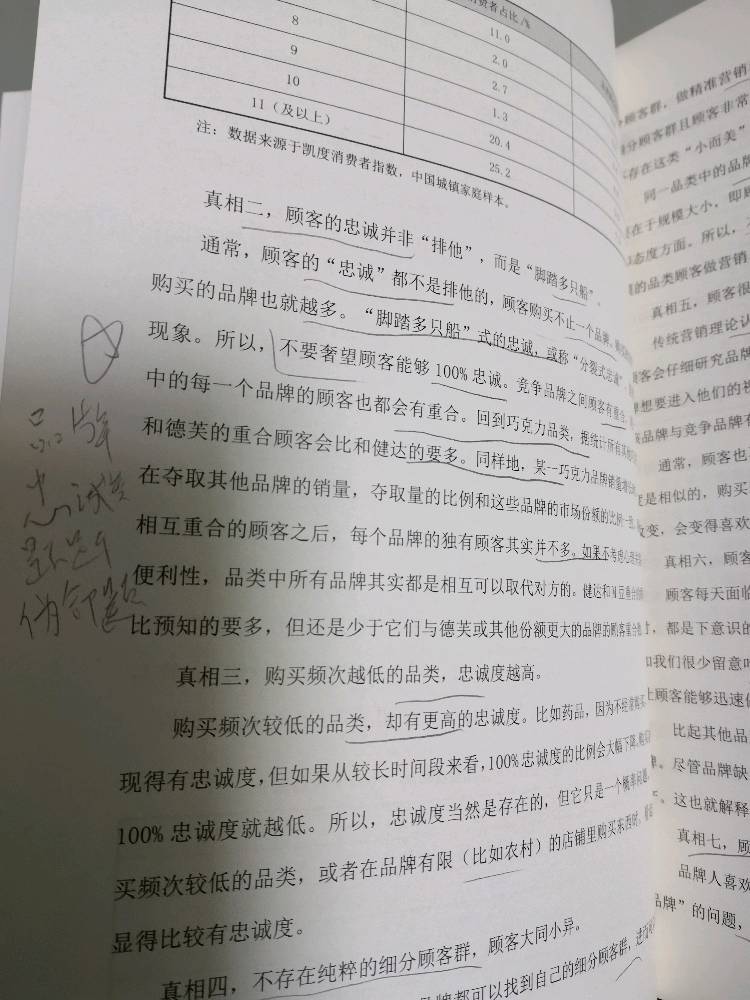 消费者占比/%
8 11.0
9 2.0
10 2.7
11（及以上） 1.3
20.4
25.2
注：数据来源于凯度消费者指数，中国城镇家庭样本。
真相二，顾客的忠诚并非“排他”，而是“脚踏多只船”。
通常，顾客的“忠诚”都不是排他的，顾客购买不止一个品牌，
购买的品牌也就越多。“脚踏多只船”式的忠诚，或称“分裂式忠诚”
现象。所以，不要奢望顾客能够100%忠诚。竞争品牌之间顾客有重合，
中的每一个品牌的顾客也都会有重合。回到巧克力品类，据统计所有其他
和德芙的重合顾客会比和健达的要多。同样地，某一巧克力品牌销量
在夺取其他品牌的销量，夺取量的比例和这些品牌的市场份额的比例一致。
相互重合的顾客之后，每个品牌的独有顾客其实并不多。如果不考虑心理
便利性，品类中所有品牌其实都是相互可以取代对方的。健达和M豆重合
比预知的要多，但还是少于它们与德芙或其他份额更大的品牌的顾客重合
真相三，购买频次越低的品类，忠诚度越高。
购买频次较低的品类，却有更高的忠诚度。比如药品，因为不经常购买，
现得有忠诚度，但如果从较长时间段来看，100%忠诚度的比例会大幅下降，
100%忠诚度就越低。所以，忠诚度当然是存在的，但它只是一个概率问题，
买频次较低的品类，或者在品牌有限（比如农村）的店铺里购买东西时，
显得比较有忠诚度。
真相四，不存在纯粹的细分顾客群，顾客大同小异。
品牌都可以找到自己的细分顾客群，
品牌
忠诚
是个
伪命题
顾客群，做精准营销
分顾客群且顾客非常
存在这类“小而美”
同一品类中的品牌
在于规模大小，即
态度方面。所以，
的品类顾客做营销
真相五，顾客很
传统营销理论认
顾客会仔细研究品牌
想要进入他们的视
品牌与竞争品牌有
通常，顾客也
是相似的，购买
改变，会变得喜欢
真相六，顾客
顾客每天面临
，都是下意识的
如我们很少留意
上顾客能够迅速
比起其他品
。尽管品牌缺
。这也就解释
真相七，顾
品牌人喜欢
品牌”的问题，